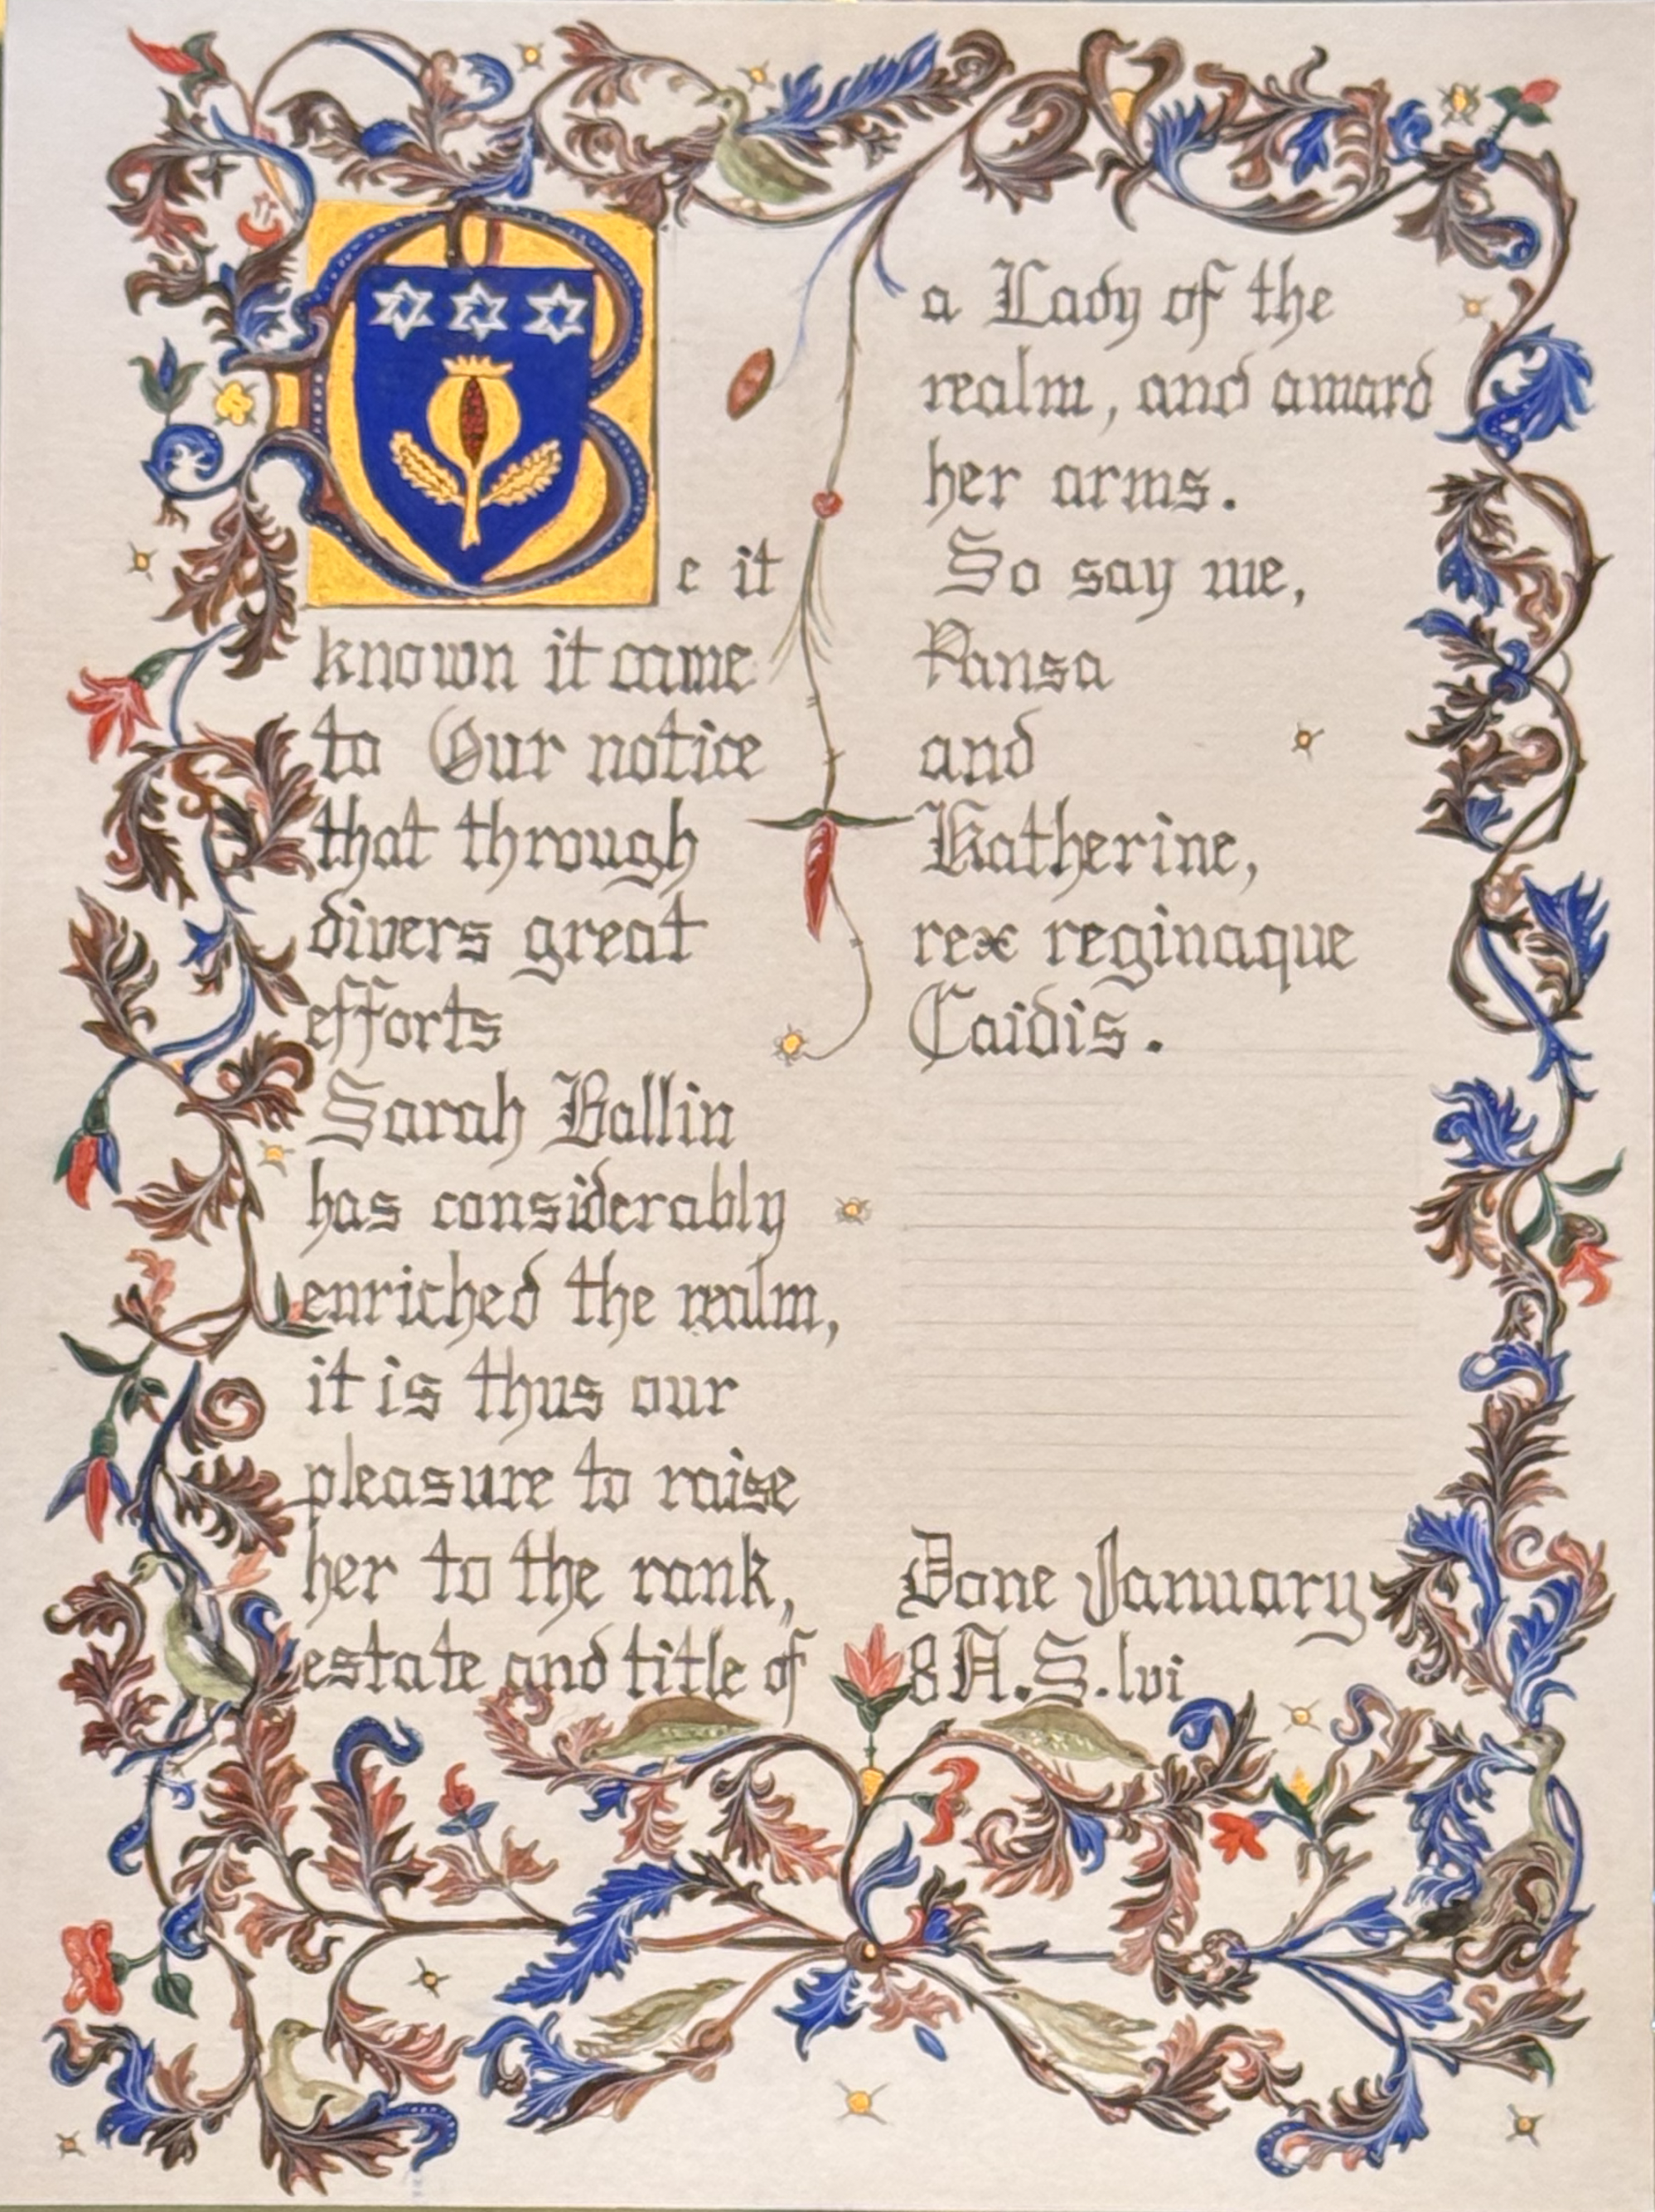 Be it
known it came
to Our notice
that through
divers great
efforts
Sarah Ballin
has considerably
enriched the realm,
it is thus our
pleasure to raise
her to the rank,
estate and title of
a Lady of the
realm, and award
her arms.
So say we,
Pansa
and
Katherine,
rex reginaque
Caidis.
Done January
8 A.S. lvi